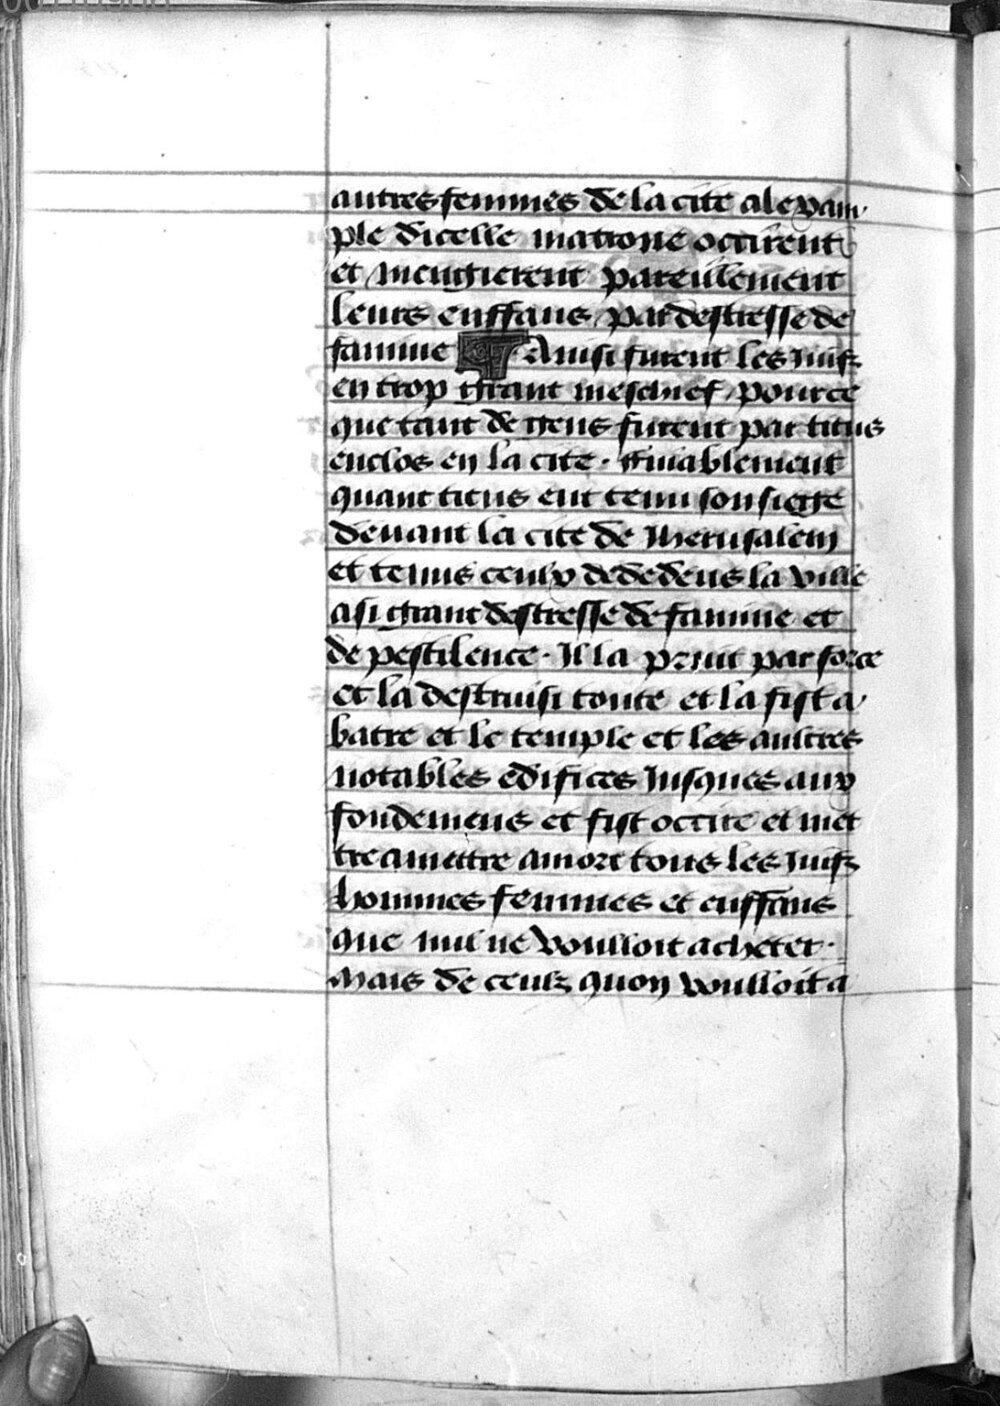 autres femmes de la cite a lexam
ple dicelle matrone occirent
et mengierent pareillement
leurs enffans par destresse de
famine ¶ Ainsi furent les juifz
en trop grant meschief pource
que tant de gens furent par titus
enclos en la cite. ffinablement
quant titus eut tenu son siege
devant la cite de Jherusalem
et tenus ceulx dededens la ville
a si grant destresse de famine et
de pestilence. Il la print par force
et la destruisi toute et la fist a
batre et le temple et les aultres
notables edifices Jusques aux
fondemens et fist occire et met
tre amettre a mort tous les juifz
hommes femmes et enffans
que nul ne voulloit acheter.
Mais de ceulz quon voulloit a